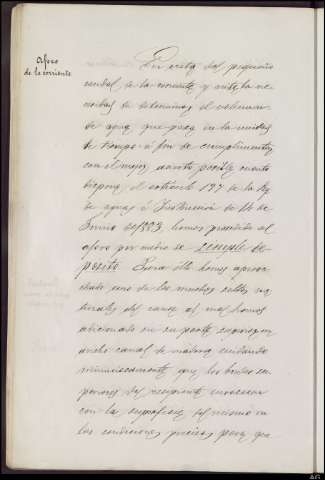 Aforo
de la corriente
En vista del pequeño
caudal de la corriente y ante la ne
cesidad de determinar el volumen
de agua que pasa en la unidad
de tiempo á fin de cumplimentar
con el mejor acierto posible cuanto
dispone el artículo 197 de la ley
de aguas é Instrucción de 14 de
Junio de 1883, hemos procedido al
aforo por medio de simple de-
pósito. Para ello hemos aprove
chado uno de los muchos saltos na
turales del cauce al cual hemos
adicionado en su parte superior un
ancho canal de madera cuidando
minuciosamente que los bordes su
periores del recipiente
con la superficie del mismo en
las condiciones precisas para que